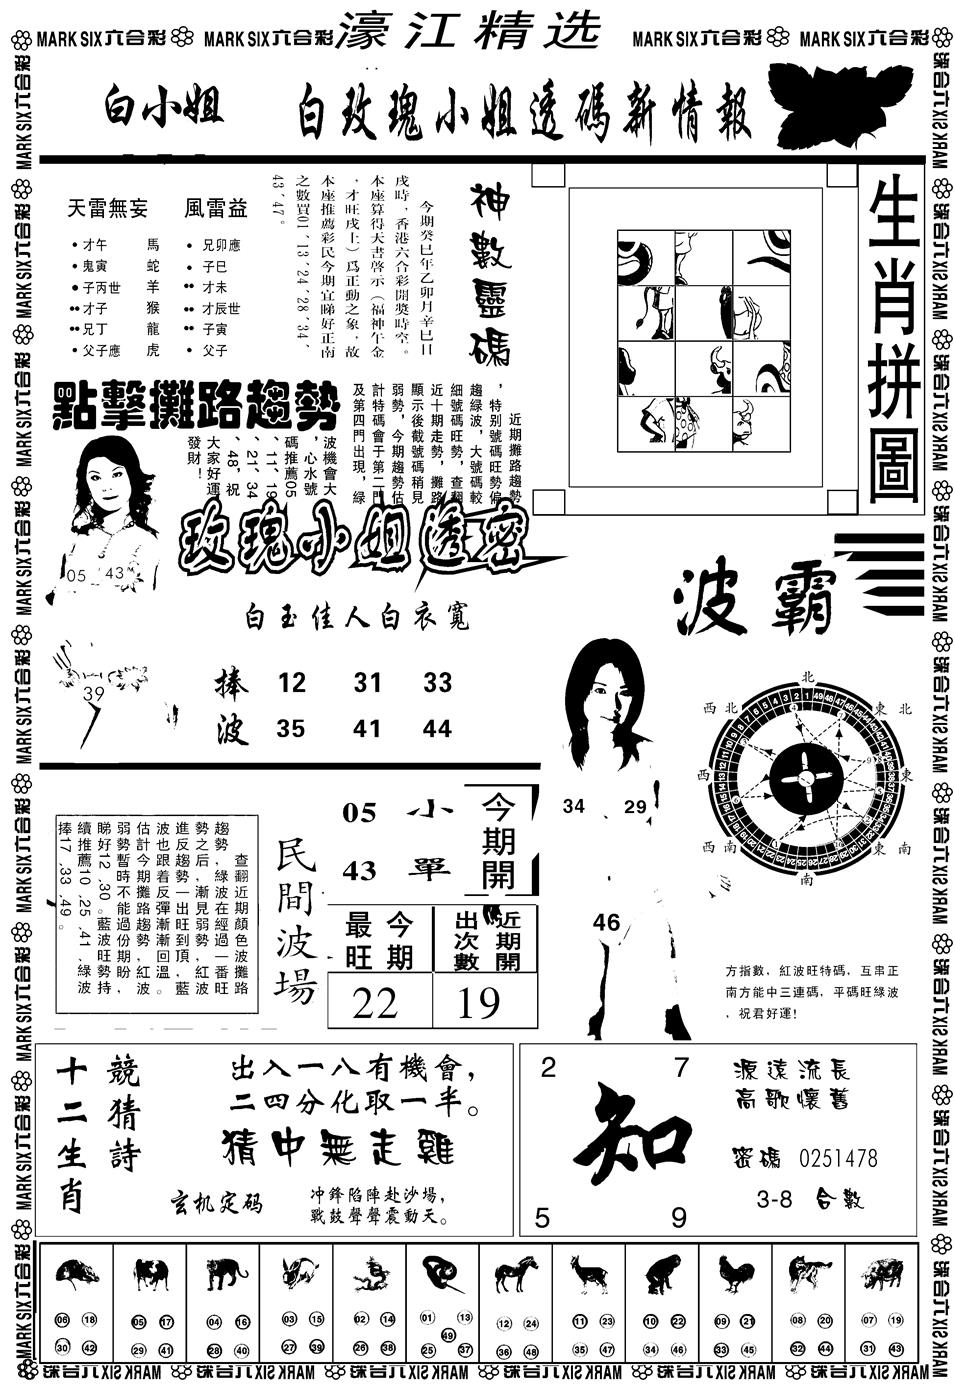 MARK SIX六合彩 MARK SIX六合彩 濠江精选 MARK SIX六合彩 MARK SIX六合彩
白小姐 白玫瑰小姐透碼新情報
天雷無妄 風雷益
才午 馬 兄卯應
鬼寅 蛇 子巳
子丙世 羊 才未
才子 猴 才辰世
兄丁 龍 子寅
父子應 虎 父子
神數靈碼
今期癸巳年乙卯月辛巳日
戌時，香港六合彩開獎時空。
本座算得天書啓示（福神午金
，才旺戌土）爲正動之象，故
本座推薦彩民今期宜睇好正南
之數買01、13、24、28、34、
43、47。
生肖拼圖
點擊攤路趨勢
近期攤路趨勢
，特别號碼旺勢偏
趨綠波，大號碼較
細號碼旺勢，查翻
近十期走勢，攤路
顯示後截號碼稍見
弱勢，今期趨勢估
計特碼會于第二門
及第四門出現，綠
波機會大
，心水號
碼推薦05
、11、19
、21、34
、48，祝
大家好運
發財！
05 43
39
玫瑰小姐透密
白玉佳人白衣寬
捧 12 31 33
波 35 41 44
波霸
34 29
46
北
西北 東北
西 東
西南 東南
南
方指數，紅波旺特碼，互串正
南方能中三連碼，平碼旺綠波
，祝君好運！
查翻近期顔色波攤路
趨勢，綠波在經過一番旺
勢之后，漸見弱勢，紅波
進反趨勢一出旺到頂，藍
波也跟着反彈漸漸回温。
估計今期攤路趨勢紅波
弱勢暫時不能過份期盼，
睇好12、30。藍波旺勢持
續推薦10、25、41、綠波
捧17、33、49。
民間波場
05 小
43 單
今期開
最旺 今期
近期開出次數
22 19
十二生肖
競猜詩
出入一八有機會，
二四分化取一半。
猜中無走雞
玄机定码
冲鋒陷陣赴沙場，
戰鼓聲聲震動天。
2 7
知
5 9
源遠流長
高歌懷舊
密碼 0251478
3-8 合數
06 18 05 17 04 16 03 15 02 14 01 13 12 24 11 23 10 22 09 21 08 20 07 19
49
30 42 29 41 28 40 27 39 26 38 25 37 36 48 35 47 34 46 33 45 32 44 31 43